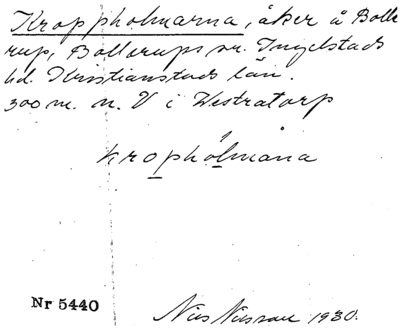 Kroppholmarna, åker å Bolle
rup, Bollerups sn. Ingelstads
hd. Kristianstads län.
300 m. n. V i Westratorp
krophólmåna
Nr 5440
Nils Nilsson 1930.